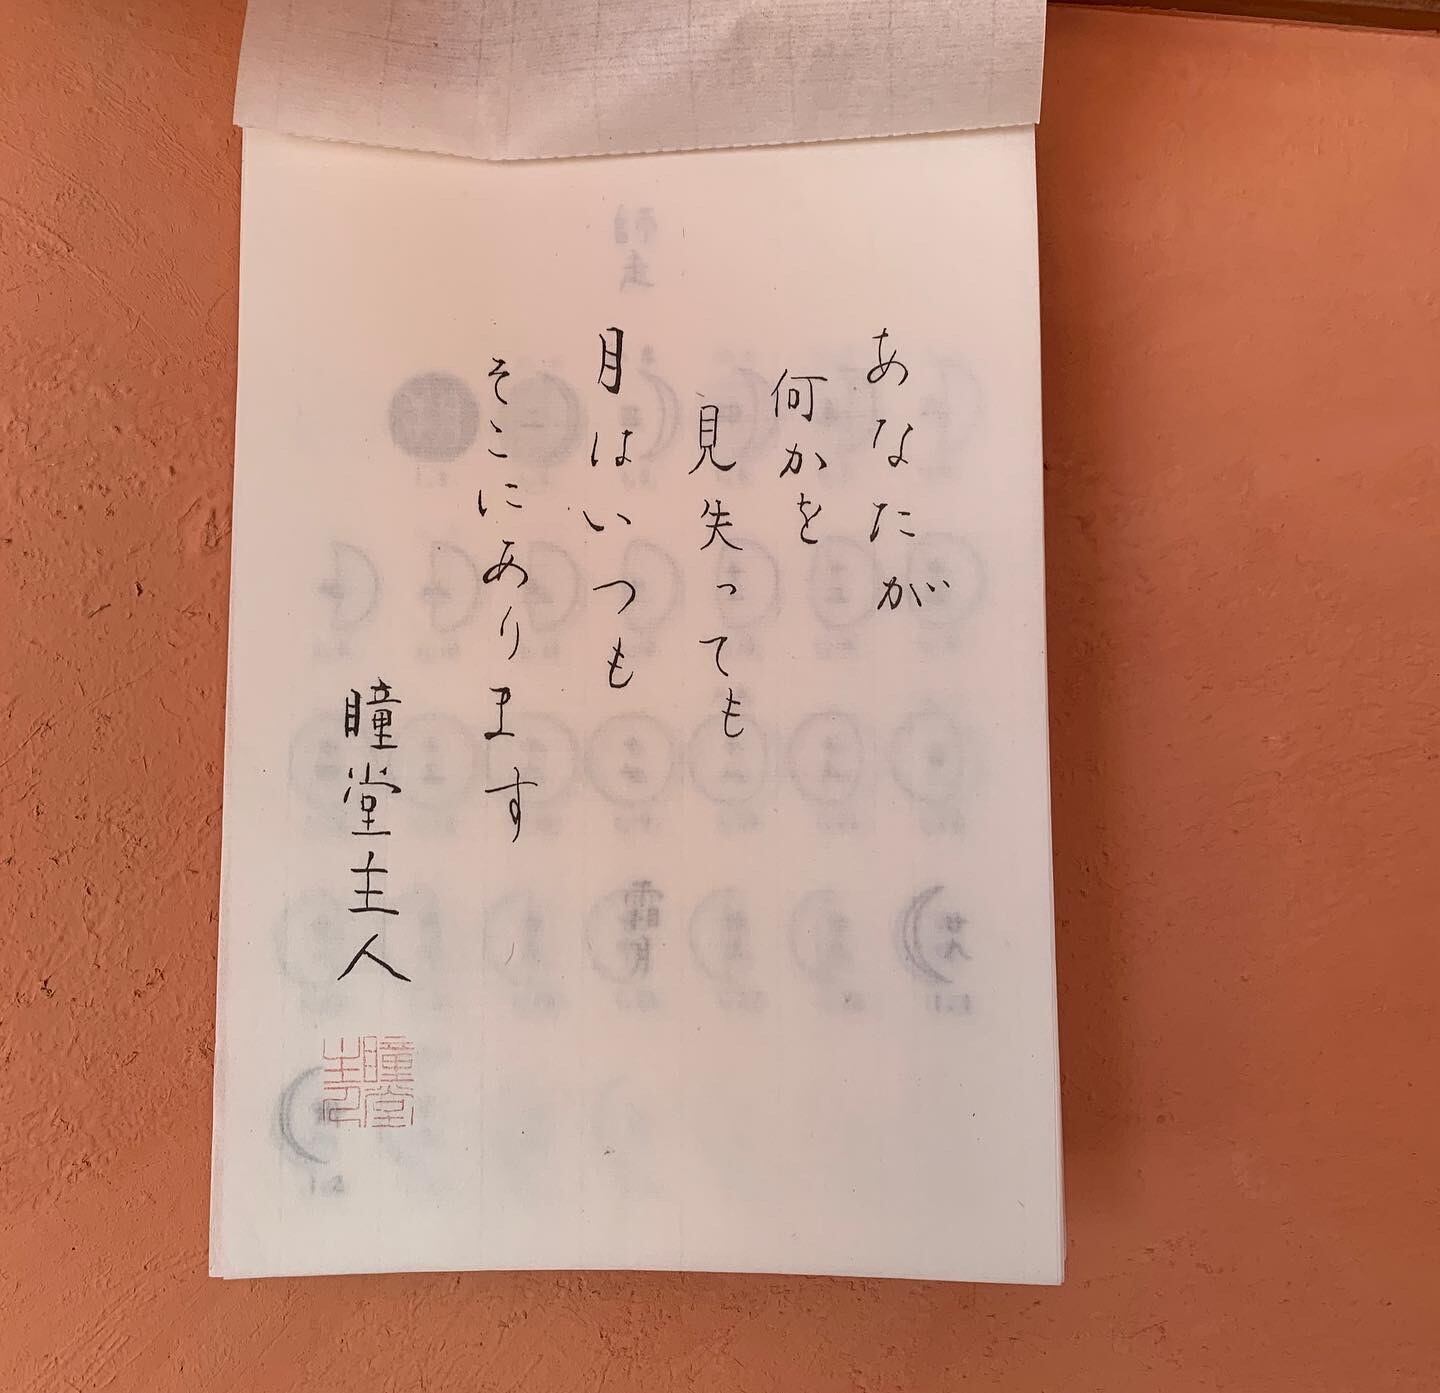 あなたが
何かを
見失っても
月はいつも
そこにあります
瞳堂主人
瞳堂主人